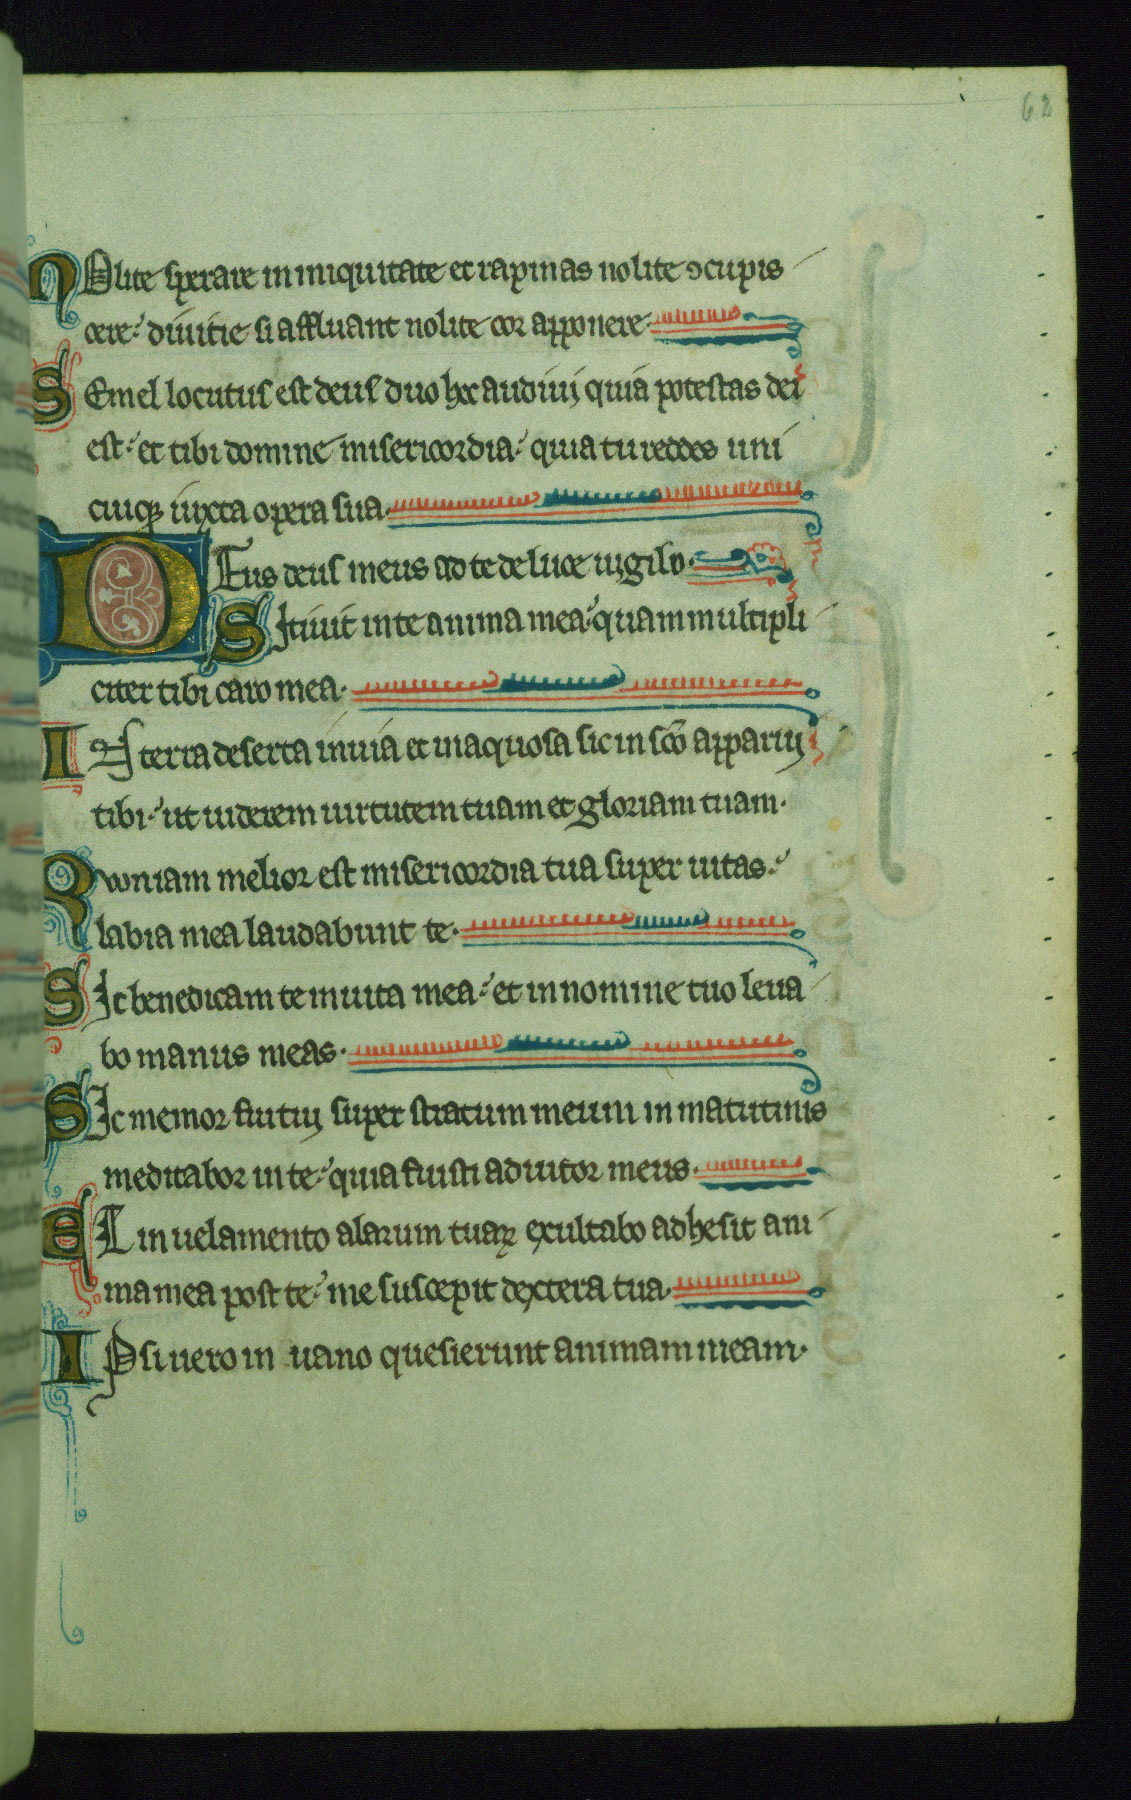 62
NOlite sperare in iniquitate et rapinas nolite ↄcupis
cere. diuitie si affluant nolite cor apponere.
SEmel locutus est deus duo hec audiui quia potestas dei
est. et tibi domine misericordia. quia tu reddes uni
cuiqꝫ iuxta opera sua.
DEus deus meus ad te de luce uigilo.
SItiuit in te anima mea. quam multipli
citer tibi caro mea.
IN terra deserta inuia et inaquosa sic in sc̄o apparui
tibi. ut uiderem uirtutem tuam et gloriam tuam.
Quoniam melior est misericordia tua super uitas.
labia mea laudabunt te.
SIc benedicam te in uita mea. et in nomine tuo leua
bo manus meas.
SIc memor fui tui super stratum meum in matutinis
meditabor in te. quia fuisti adiutor meus.
ET in uelamento alarum tuaꝝ exultabo adhesit ani
ma mea post te. me suscepit dextera tua.
IPsi uero in uano quesierunt animam meam.